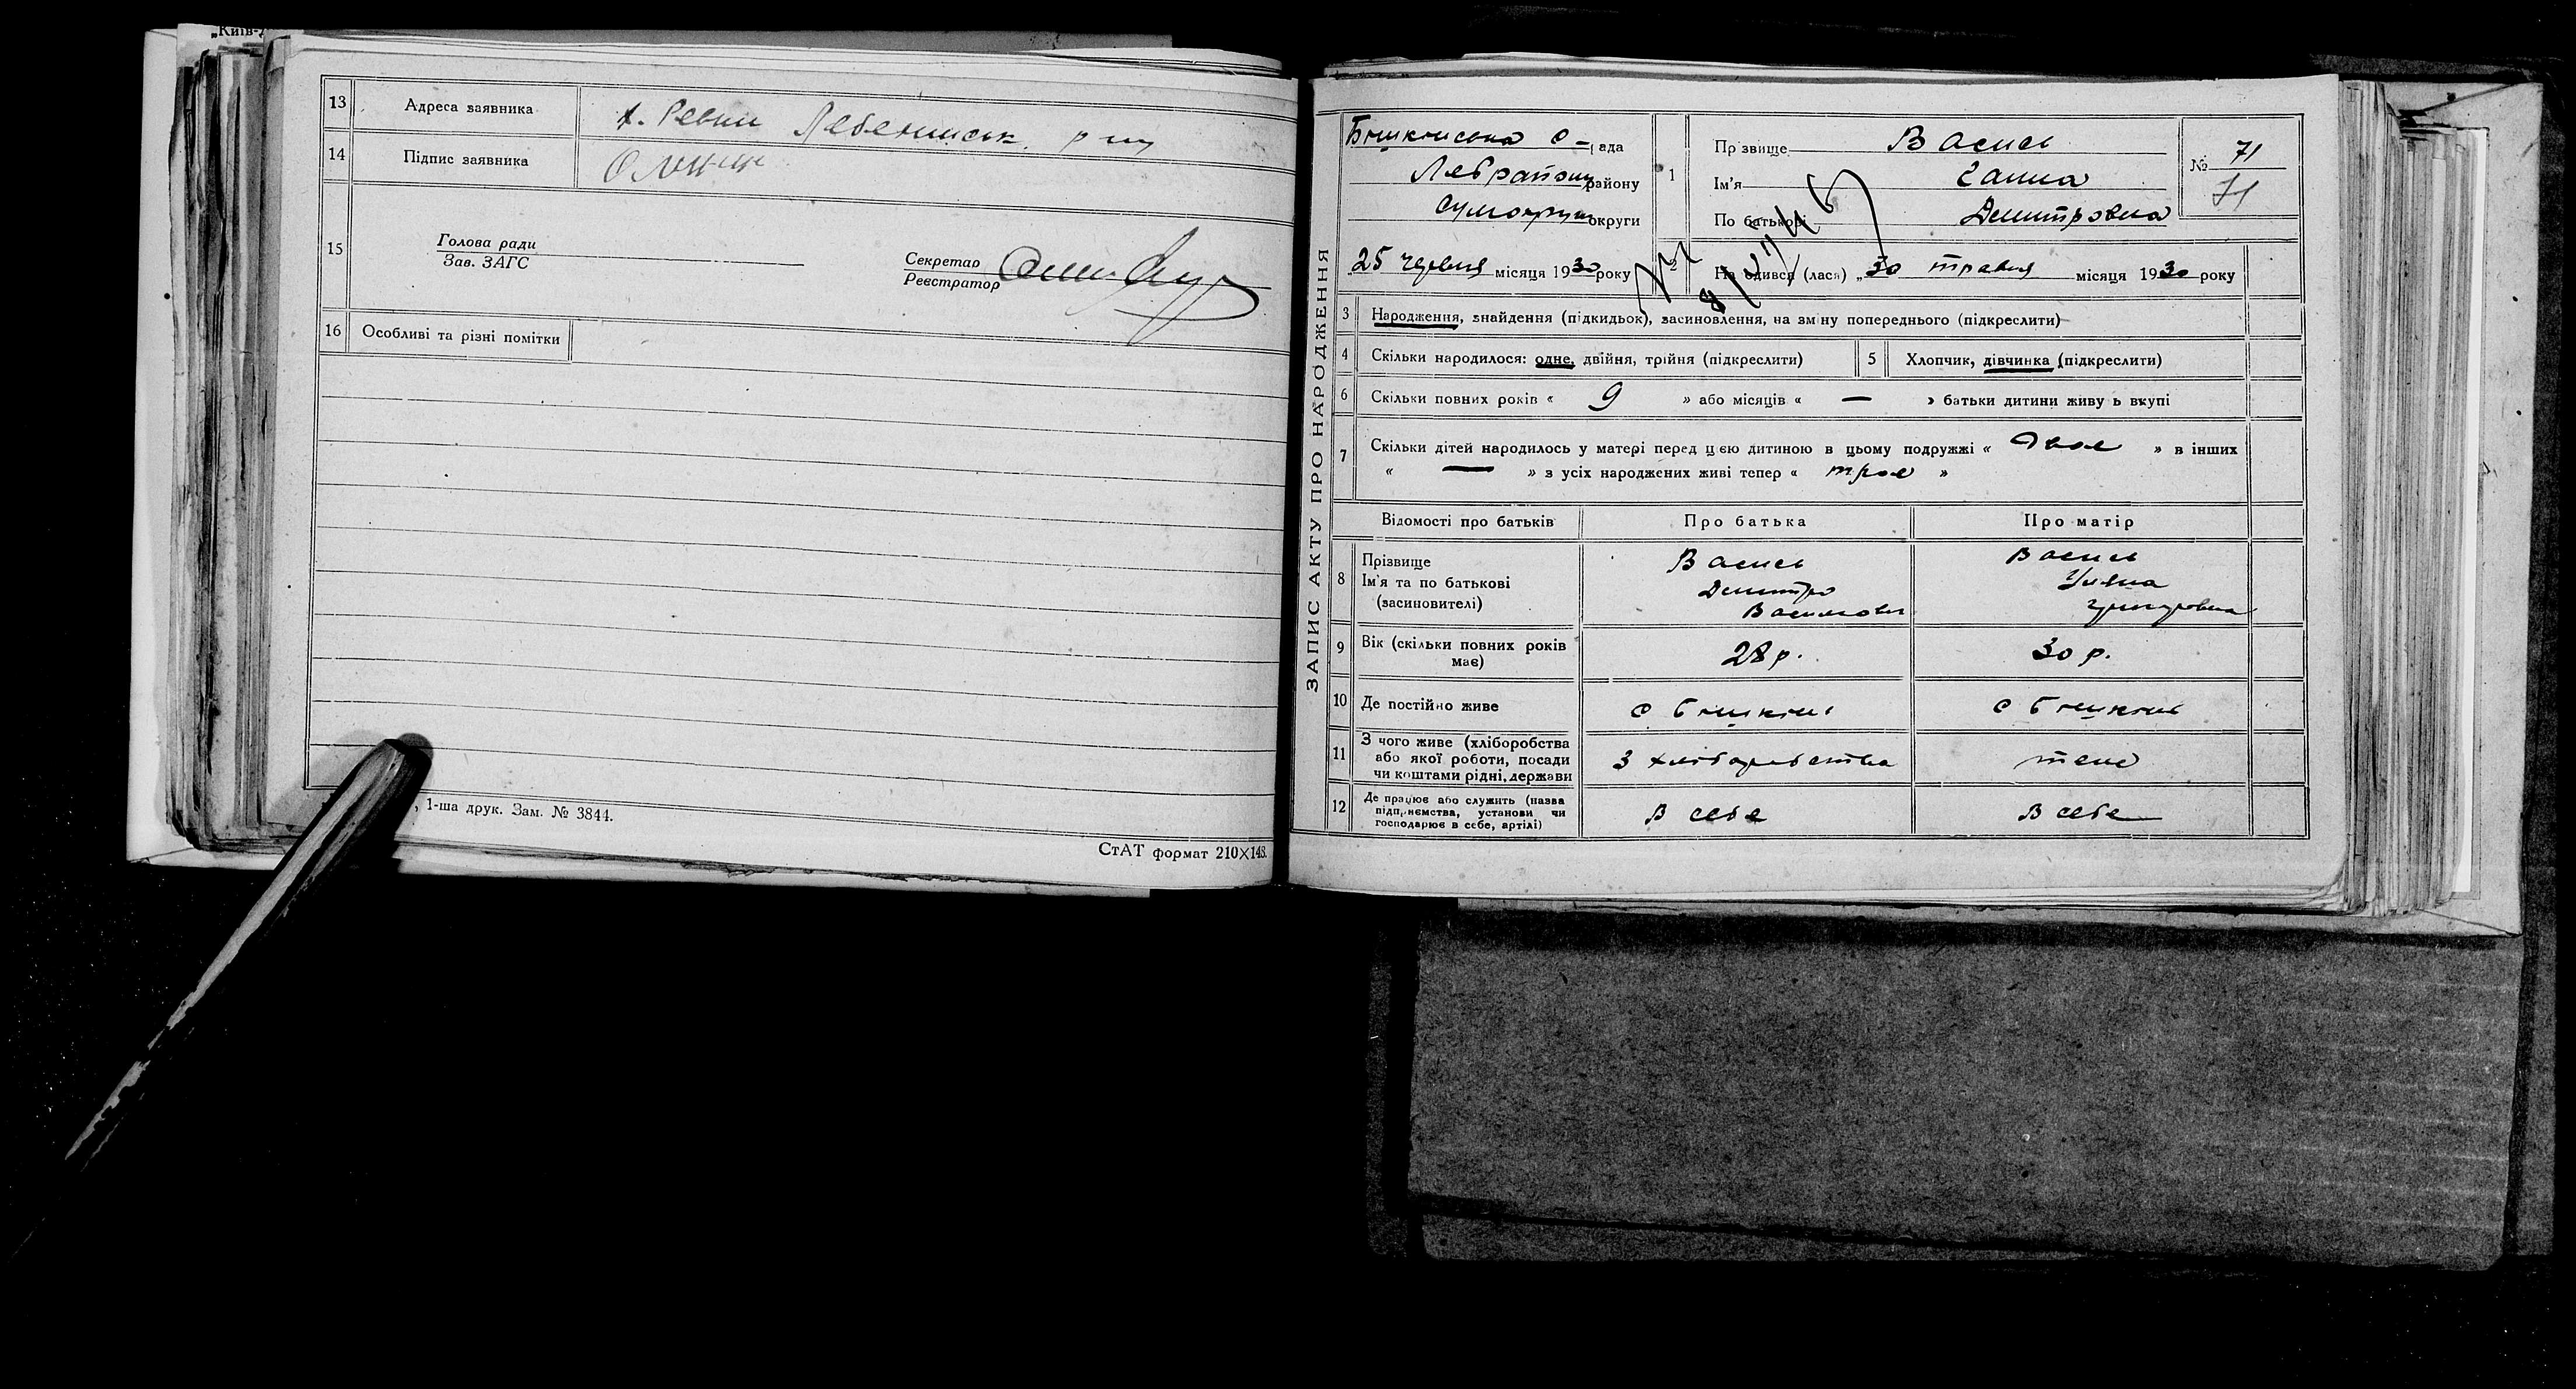 „Київ-
13 Адреса заявника х. Ревки Лебединськ. р-ну
14 Підпис заявника
15 Голова ради
Зав. ЗАГС
Секретар
Реєстратор
16 Особливі та різні помітки
, 1-ша друк. Зам. № 3844.
СтАТ формат 210×148.
ЗАПИС АКТУ ПРО НАРОДЖЕННЯ
Бишкинська с-рада
Лебрайону району
Сумокруги округи
25 червня місяця 1930 року
1 Прізвище Васись
Ім'я Ганна
По батькові Дмитровна
№ 71
71
2 Народився (лася) „30 травня місяця 1930 року
3 Народження, знайдення (підкидьок), засиновлення, на зміну попереднього (підкреслити)
4 Скільки народилося: одне, двійня, трійня (підкреслити) 5 Хлопчик, дівчинка (підкреслити)
6 Скільки повних років « 9 » або місяців « — » батьки дитини живуть вкупі
7 Скільки дітей народилось у матері перед цією дитиною в цьому подружжі « Двое » в інших
« — » з усіх народжених живі тепер « трое »
Відомості про батьків Про батька Про матір
8 Прізвище Васись Васись
Ім'я та по батькові Дмитро Уляна
(засиновителі) Василович Григоровна
9 Вік (скільки повних років має) 28 р. 30 р.
10 Де постійно живе с Бишкинь с Бишкинь
11 З чого живе (хліборобства
або якої роботи, посади
чи коштами рідні, держави З хліборобства теж
12 Де працює або служить (назва
підприємства, установи чи
господарює в себе, артілі) В себе В себе